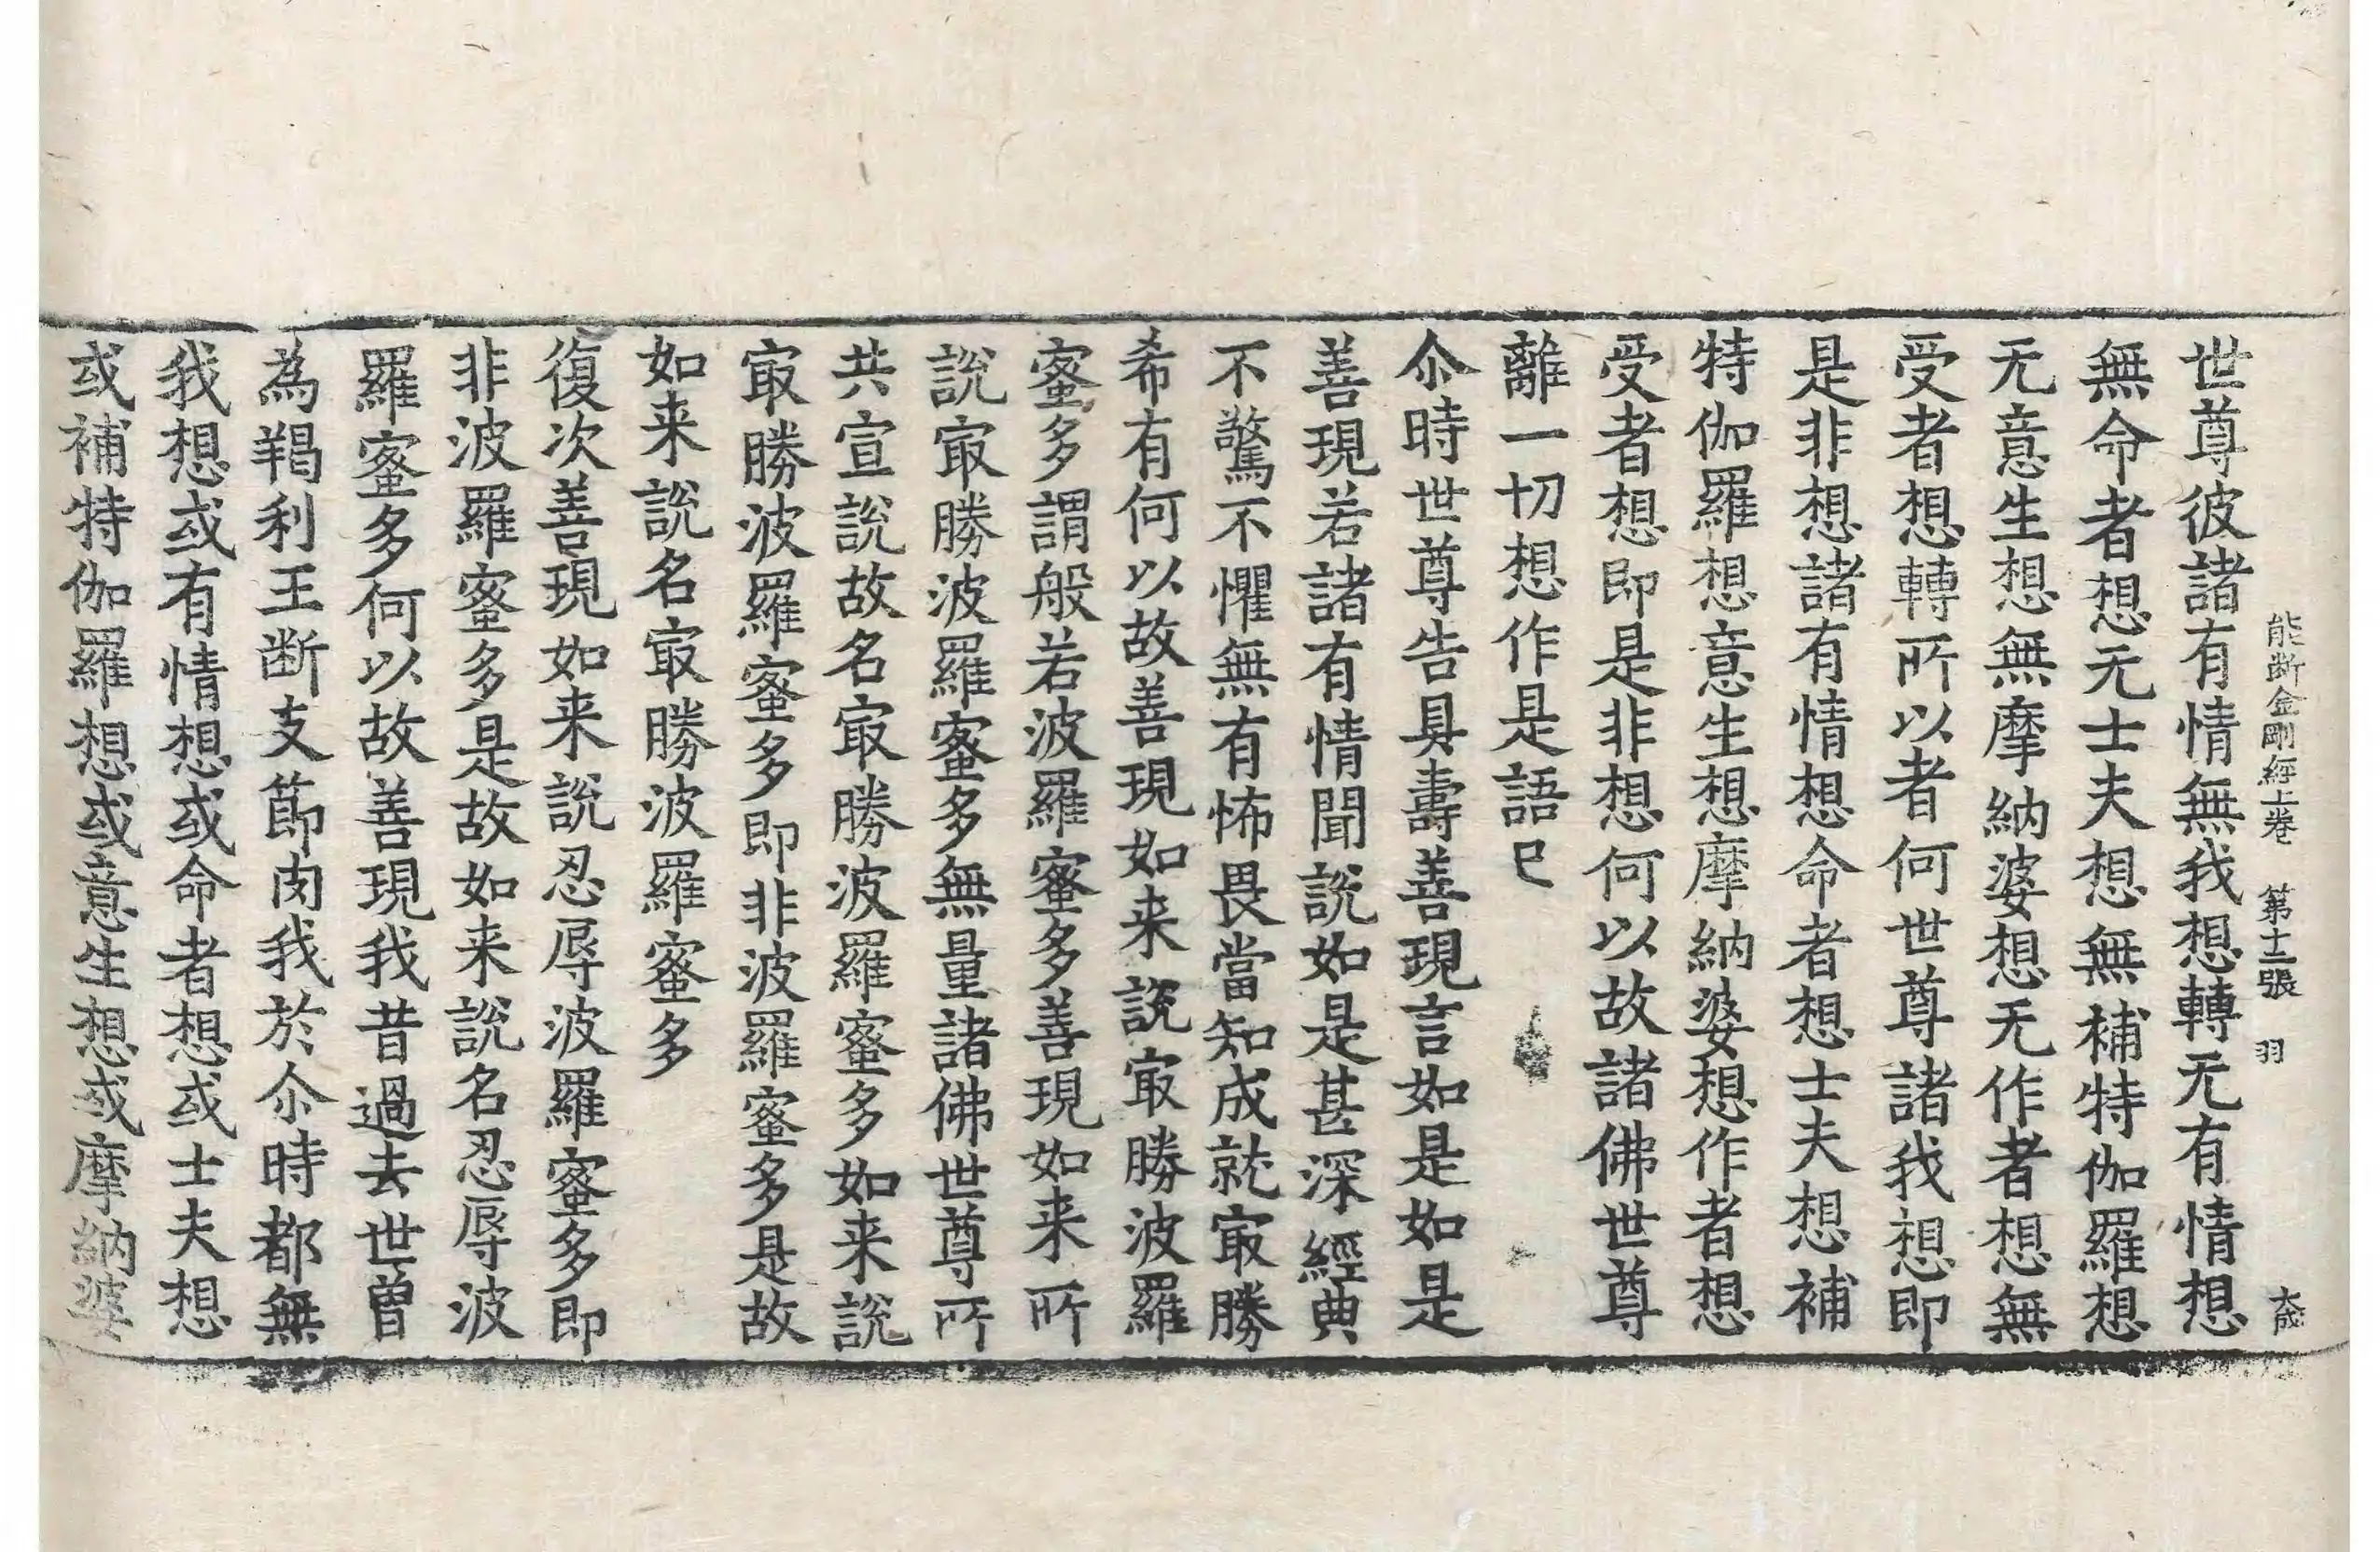 能断金剛經上卷 第十二張 羽
世尊彼諸有情無我想轉无有情想
無命者想无士夫想無補特伽羅想
无意生想無摩納婆想无作者想無
受者想轉所以者何世尊諸我想即
是非想諸有情想命者想士夫想補
特伽羅想意生想摩納婆想作者想
受者想即是非想何以故諸佛世尊
離一切想作是語已
尒時世尊告具壽善現言如是如是
善現若諸有情聞說如是甚深經典
不驚不懼無有怖畏當知成就冣勝
希有何以故善現如来說冣勝波羅
蜜多謂般若波羅蜜多善現如来所
說冣勝波羅蜜多無量諸佛世尊所
共宣說故名冣勝波羅蜜多如来說
冣勝波羅蜜多即非波羅蜜多是故
如来說名冣勝波羅蜜多
復次善現如来說忍辱波羅蜜多即
非波羅蜜多是故如来說名忍辱波
羅蜜多何以故善現我昔過去世曾
為羯利王断支節肉我於尒時都無
我想或有情想或命者想或士夫想
或補特伽羅想或意生想或摩納婆